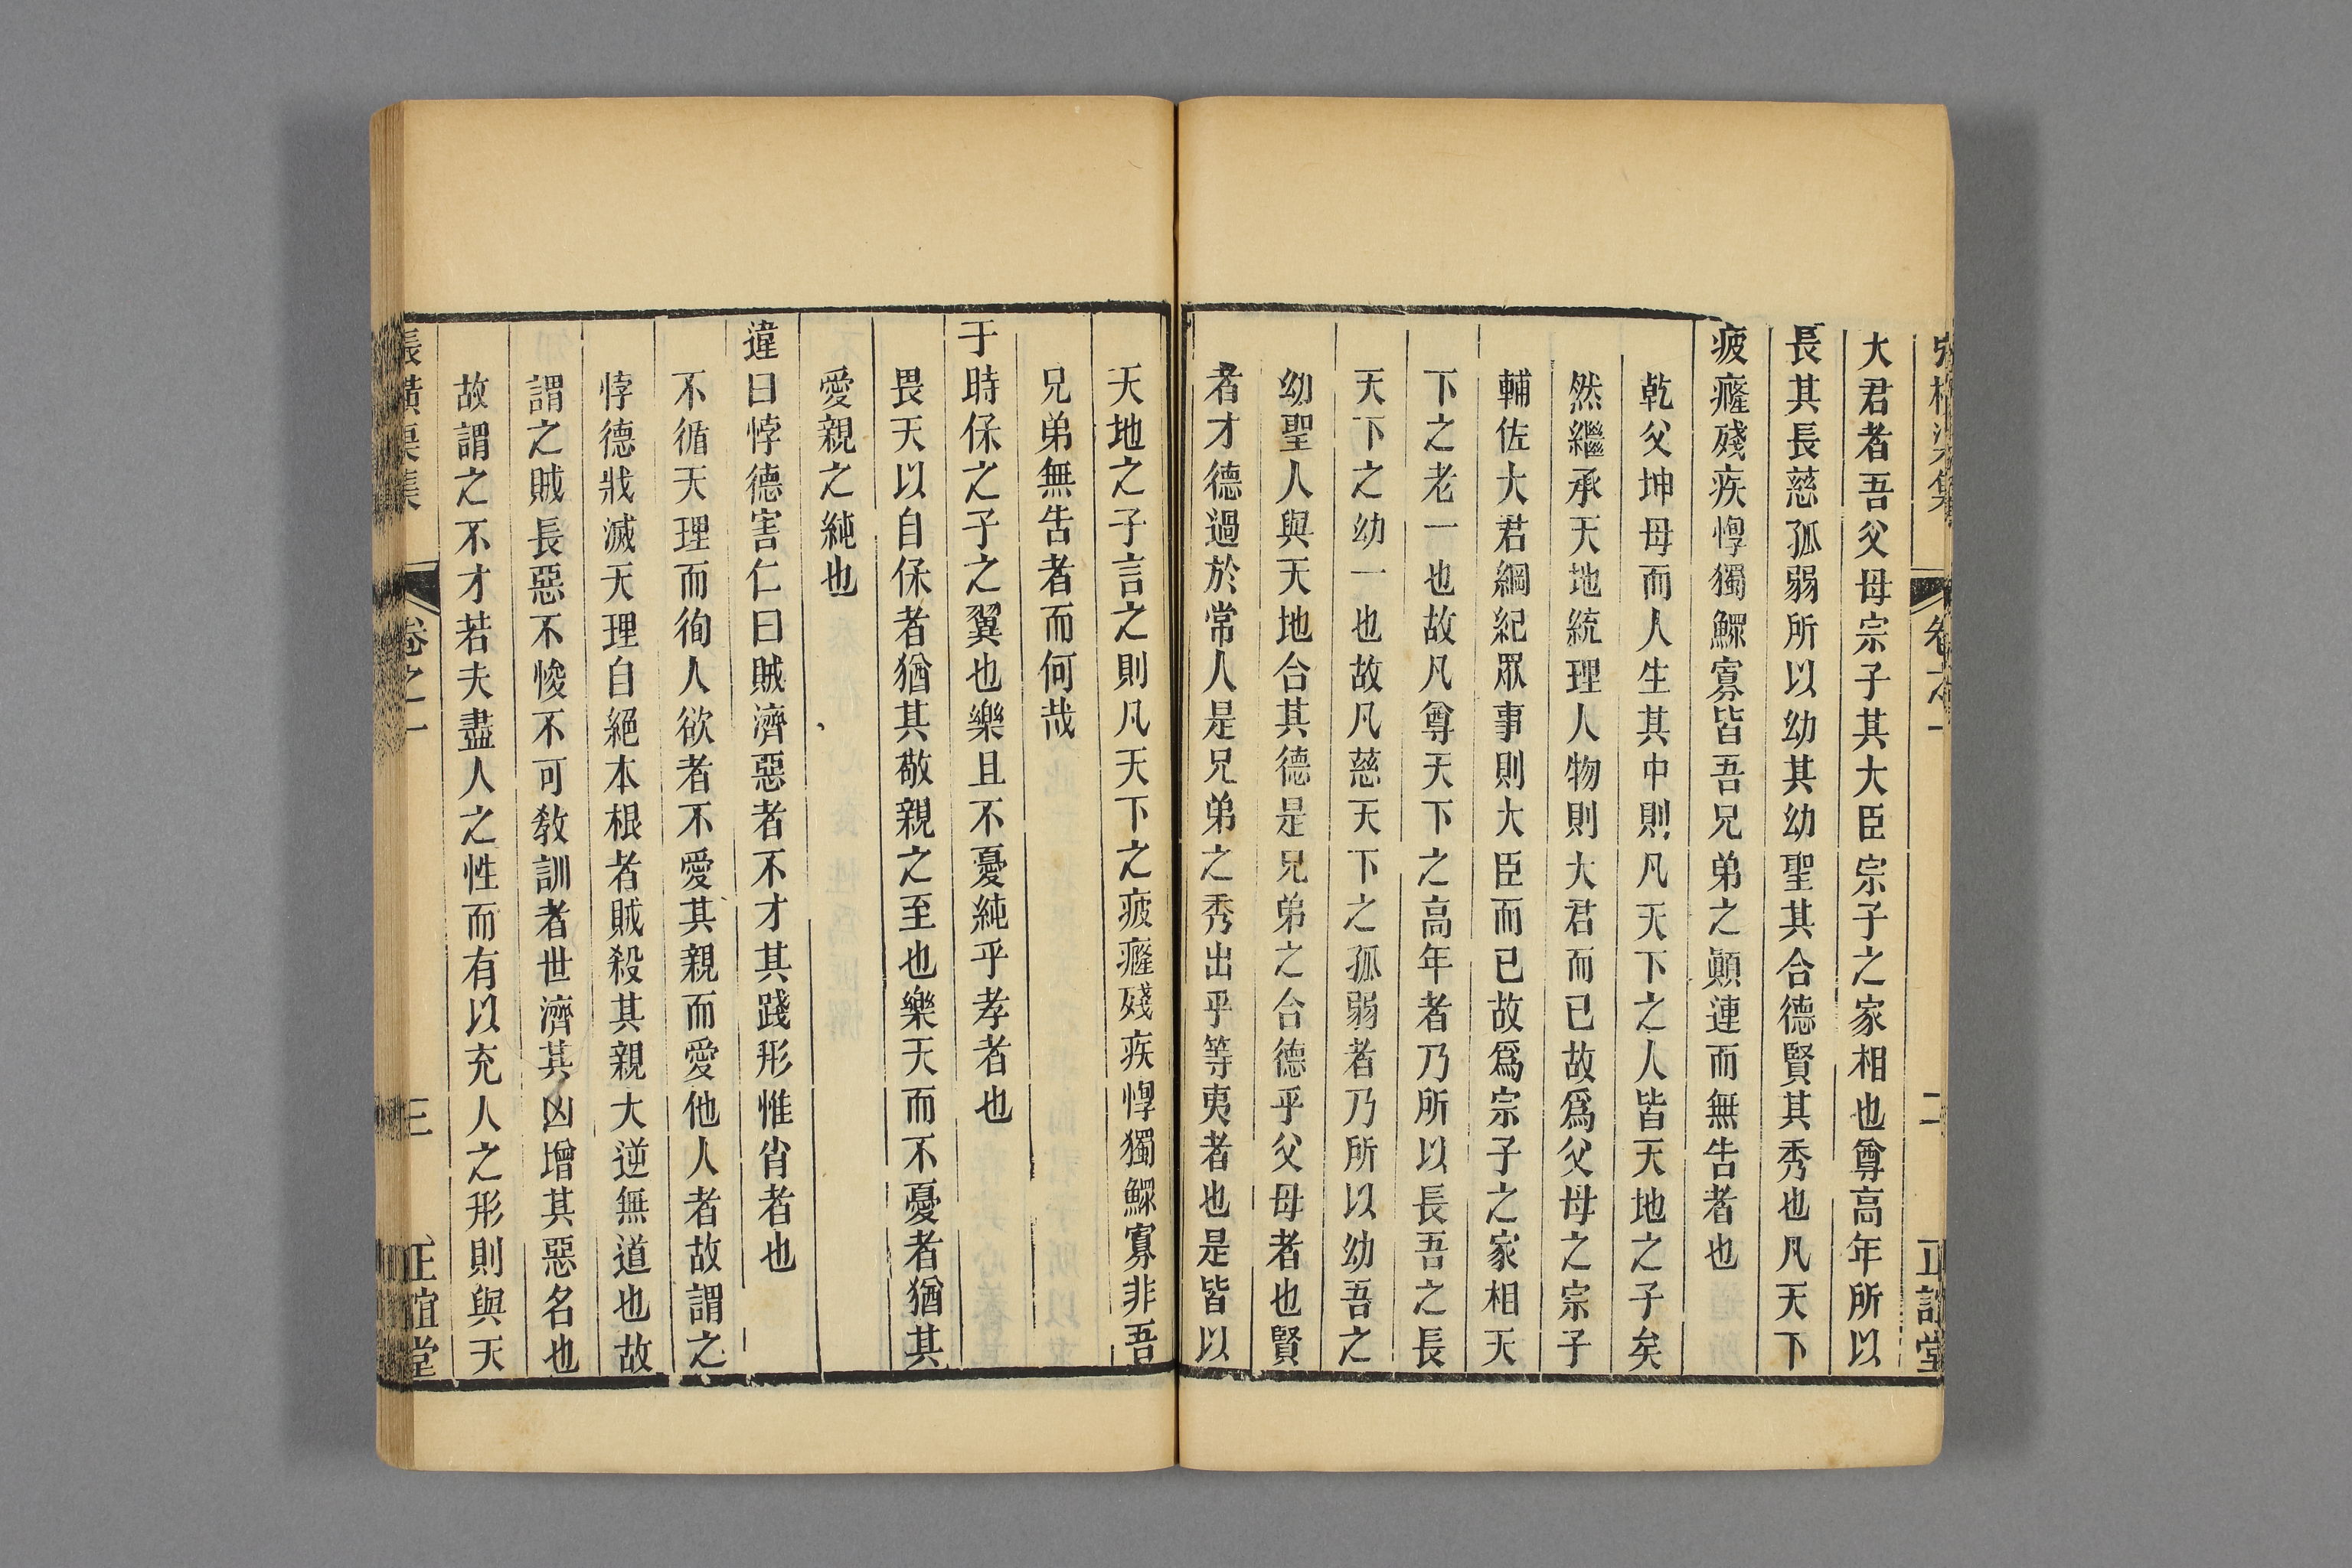 大君者吾父母宗子其大臣宗子之家相也尊高年所以
長其長慈孤弱所以幼其幼聖其合德賢其秀也凡天下
疲癃殘疾惸獨鰥寡皆吾兄弟之顚連而無告者也
乾父坤母而人生其中則凡天下之人皆天地之子矣
然繼承天地統理人物則大君而已故爲父母之宗子
輔佐大君綱紀眾事則大臣而已故爲宗子之家相天
下之老一也故凡尊天下之高年者乃所以長吾之長
天下之幼一也故凡慈天下之孤弱者乃所以幼吾之
幼聖人與天地合其德是兄弟之合德乎父母者也賢
者才德過於常人是兄弟之秀出乎等夷者也是皆以
天地之子言之則凡天下之疲癃殘疾惸獨鰥寡非吾
兄弟無告者而何哉
于時保之子之翼也樂且不憂純乎孝者也
畏天以自保者猶其敬親之至也樂天而不憂者猶其
愛親之純也
違曰悖德害仁曰賊濟惡者不才其踐形惟肖者也
不循天理而徇人欲者不愛其親而愛他人者故謂之
悖德戕滅天理自絕本根者賊殺其親大逆無道也故
謂之賊長惡不悛不可敎訓者世濟其凶增其惡名也
故謂之不才若夫盡人之性而有以充人之形則與天
張橫渠集
卷之一
三
正誼堂